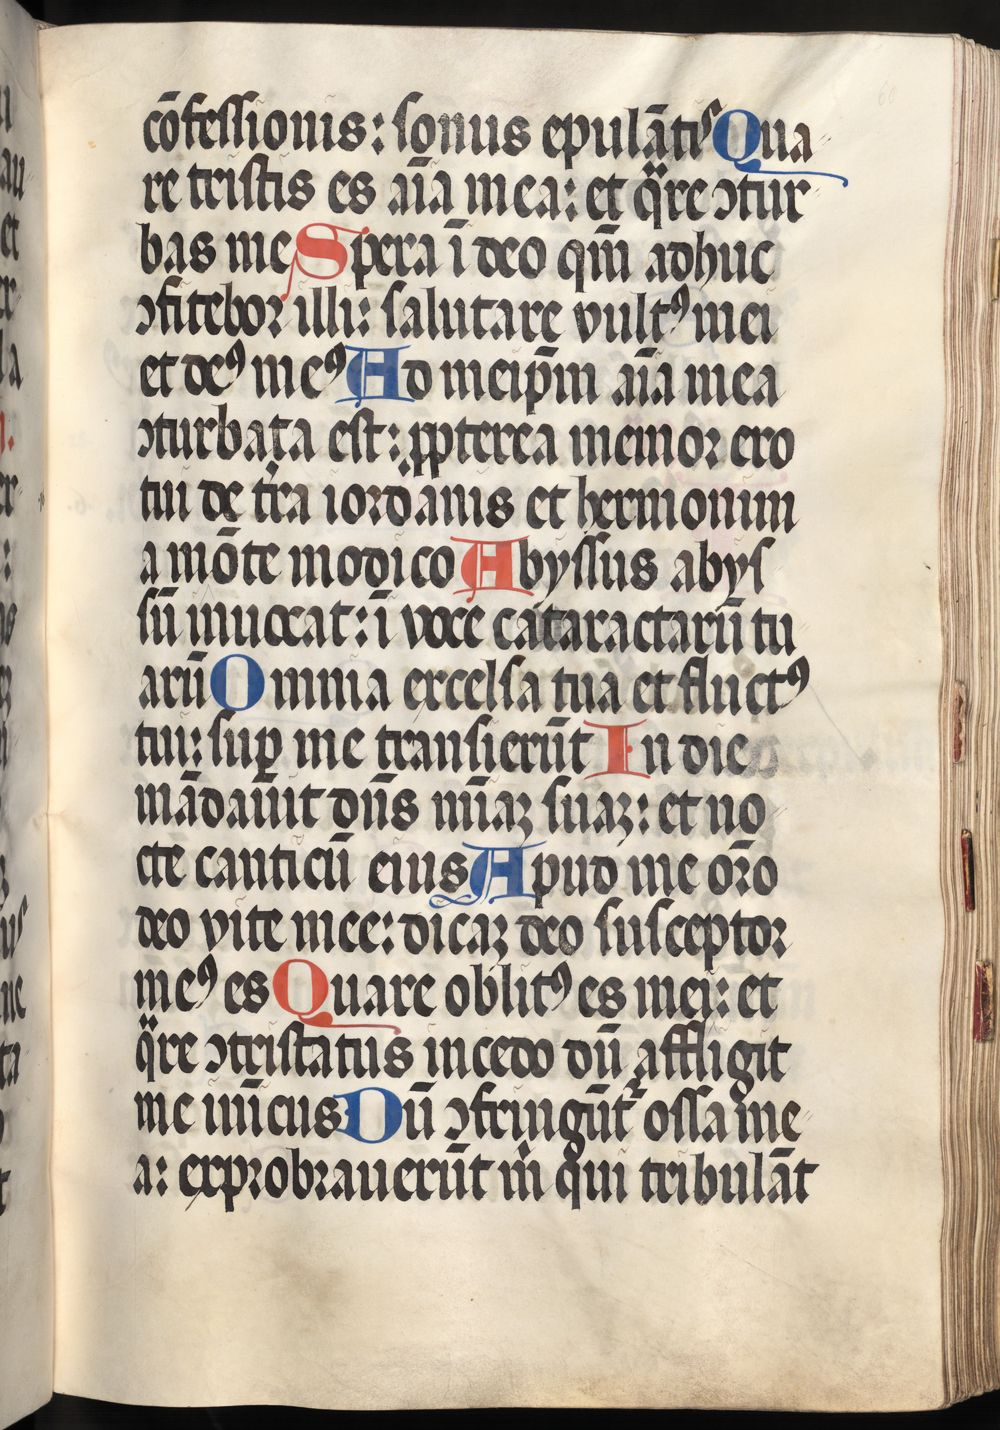 cōfessionis: sonus epulātꝭ Qua
re tristis es aīa mea: et q̈re ↄtur
bas me Spera ī deo qm̄ adhuc
ↄfitebor illi: salutare vultꝰ mei
et deꝰ meꝰ Ad meip̄m aīa mea
ↄturbata est: ꝓpterea memor ero
tui de tr̄a iordanis et hermoniim
a mōte modico Abyssus abys
sū inuocat: ī voce cataractarū tu
arū Omnia excelsa tua et fluctꝰ
tui: suꝑ me transierūt In die
mādauit dn̄s mīaꝫ suaꝫ: et no
cte canticū eius Apud me oro
deo vite mee: dicaꝫ deo susceptor
meꝰ es Quare oblitꝰ es mei: et
q̈re ↄtristatus incedo dū affligit
me inicus Dū ↄfringūt ossa me
a: exprobrauerūt m̄ qui tribulāt
60